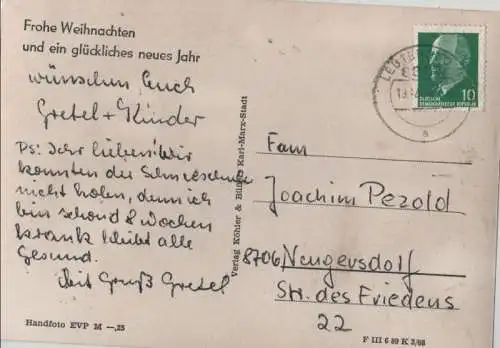 Frohe Weihnachten
und ein glückliches neues Jahr
wünschen Euch
Gretel + Kinder
Ps: Ihr lieben! Wir
konnten
nicht holen, denn ich
bin schon 8 Wochen
krank bleibt alle
Gesund.
Mit Gruß Gretel
Handfoto EVP M —,25
Verlag Köhler & Büttner Karl-Marx-Stadt
10
DEUTSCHE
DEMOKRATISCHE REPUBLIK
a
Fam
Joachim Pezold
8706 Neugersdorf
Str. des Friedens
22
F III 6 89 K 3/68